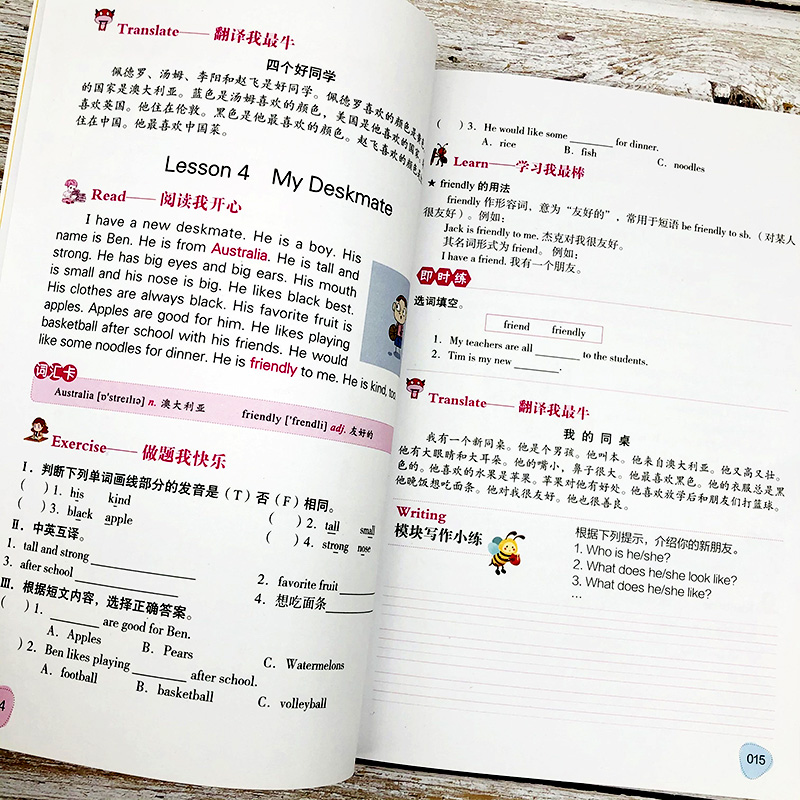 Translate—— 翻译我最牛
四个好同学
佩德罗、汤姆、李阳和赵飞是好同学。佩德罗喜欢的颜色是
的国家是澳大利亚。蓝色是汤姆喜欢的颜色，美国是他喜欢的国家。
喜欢英国。他住在伦敦。黑色是他最喜欢的颜色。赵飞喜欢的颜色
住在中国。他最喜欢中国菜。
Lesson 4 My Deskmate
Read—— 阅读我开心
I have a new deskmate. He is a boy. His
name is Ben. He is from Australia. He is tall and
strong. He has big eyes and big ears. His mouth
is small and his nose is big. He likes black best.
His clothes are always black. His favorite fruit is
apples. Apples are good for him. He likes playing
basketball after school with his friends. He would
like some noodles for dinner. He is friendly to me. He is kind, too
词汇卡
Australia [ɒ'streɪlɪə] n. 澳大利亚 friendly ['frendli] adj. 友好的
Exercise—— 做题我快乐
Ⅰ. 判断下列单词画线部分的发音是（T）否（F）相同。
( ) 1. his kind ( ) 2. tall small
( ) 3. black apple ( ) 4. strong nose
Ⅱ. 中英互译。
1. tall and strong ________ 2. favorite fruit ________
3. after school ________ 4. 想吃面条________
Ⅲ. 根据短文内容，选择正确答案。
( ) 1. ________ are good for Ben.
A. Apples B. Pears C. Watermelons
) 2. Ben likes playing ________ after school.
A. football B. basketball C. volleyball
4
( ) 3. He would like some ________ for dinner.
A. rice B. fish C. noodles
Learn——学习我最棒
★ friendly 的用法
friendly 作形容词、意为“友好的”，常用于短语 be friendly to sb.（对某人
很友好）。例如：
Jack is friendly to me. 杰克对我很友好。
其名词形式为 friend。例如：
I have a friend. 我有一个朋友。
即时练
选词填空。
friend friendly
1. My teachers are all ________ to the students.
2. Tim is my new ________.
Translate—— 翻译我最牛
我 的 同 桌
我有一个新同桌。他是个男孩。他叫本。他来自澳大利亚。他又高又壮。
他有大眼睛和大耳朵。他的嘴小，鼻子很大。他最喜欢黑色。他的衣服总是黑
色的。他喜欢的水果是苹果。苹果对他有好处。他喜欢放学后和朋友们打篮球。
他晚饭想吃面条。他对我很友好。他也很善良。
Writing
模块写作小练
根据下列提示，介绍你的新朋友。
1. Who is he/she?
2. What does he/she look like?
3. What does he/she like?
...
015